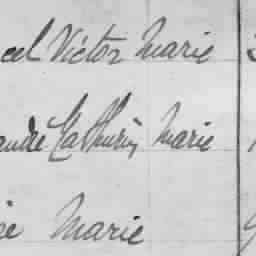 cel Victor Marie
aude Mathurin Marie
ie Marie